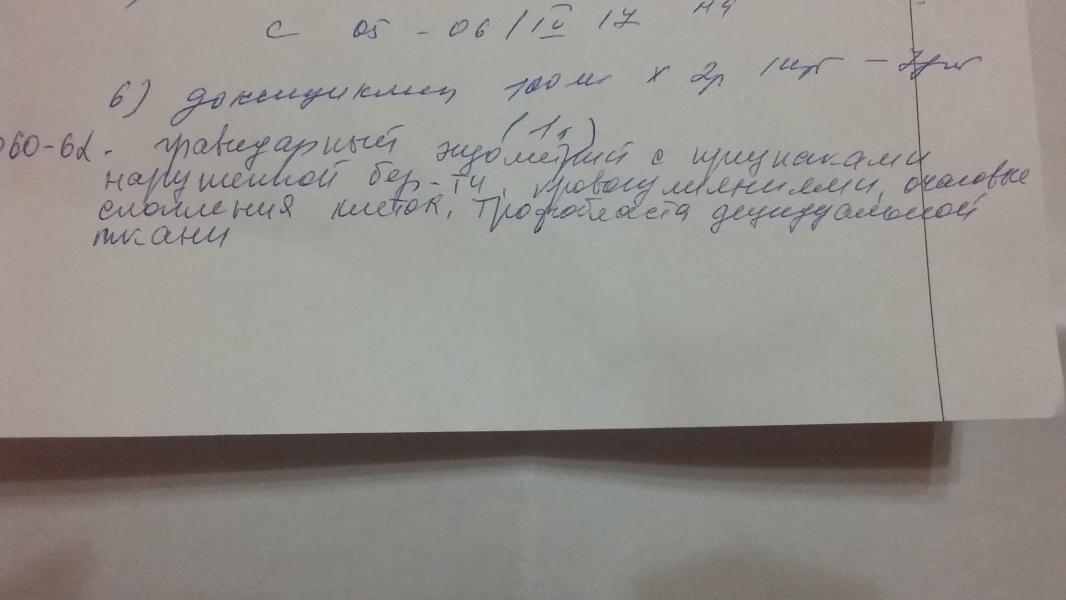 с 05 - 06 / IV 17
6) доксициклин 100 мг х 2р - 7дн
(1т)
060-62. гравидарный эндометрий с признаками
нарушенной бер-ти, кровоизлияниями, очаговые
скопления клеток, трофобласта децидуальной
ткани